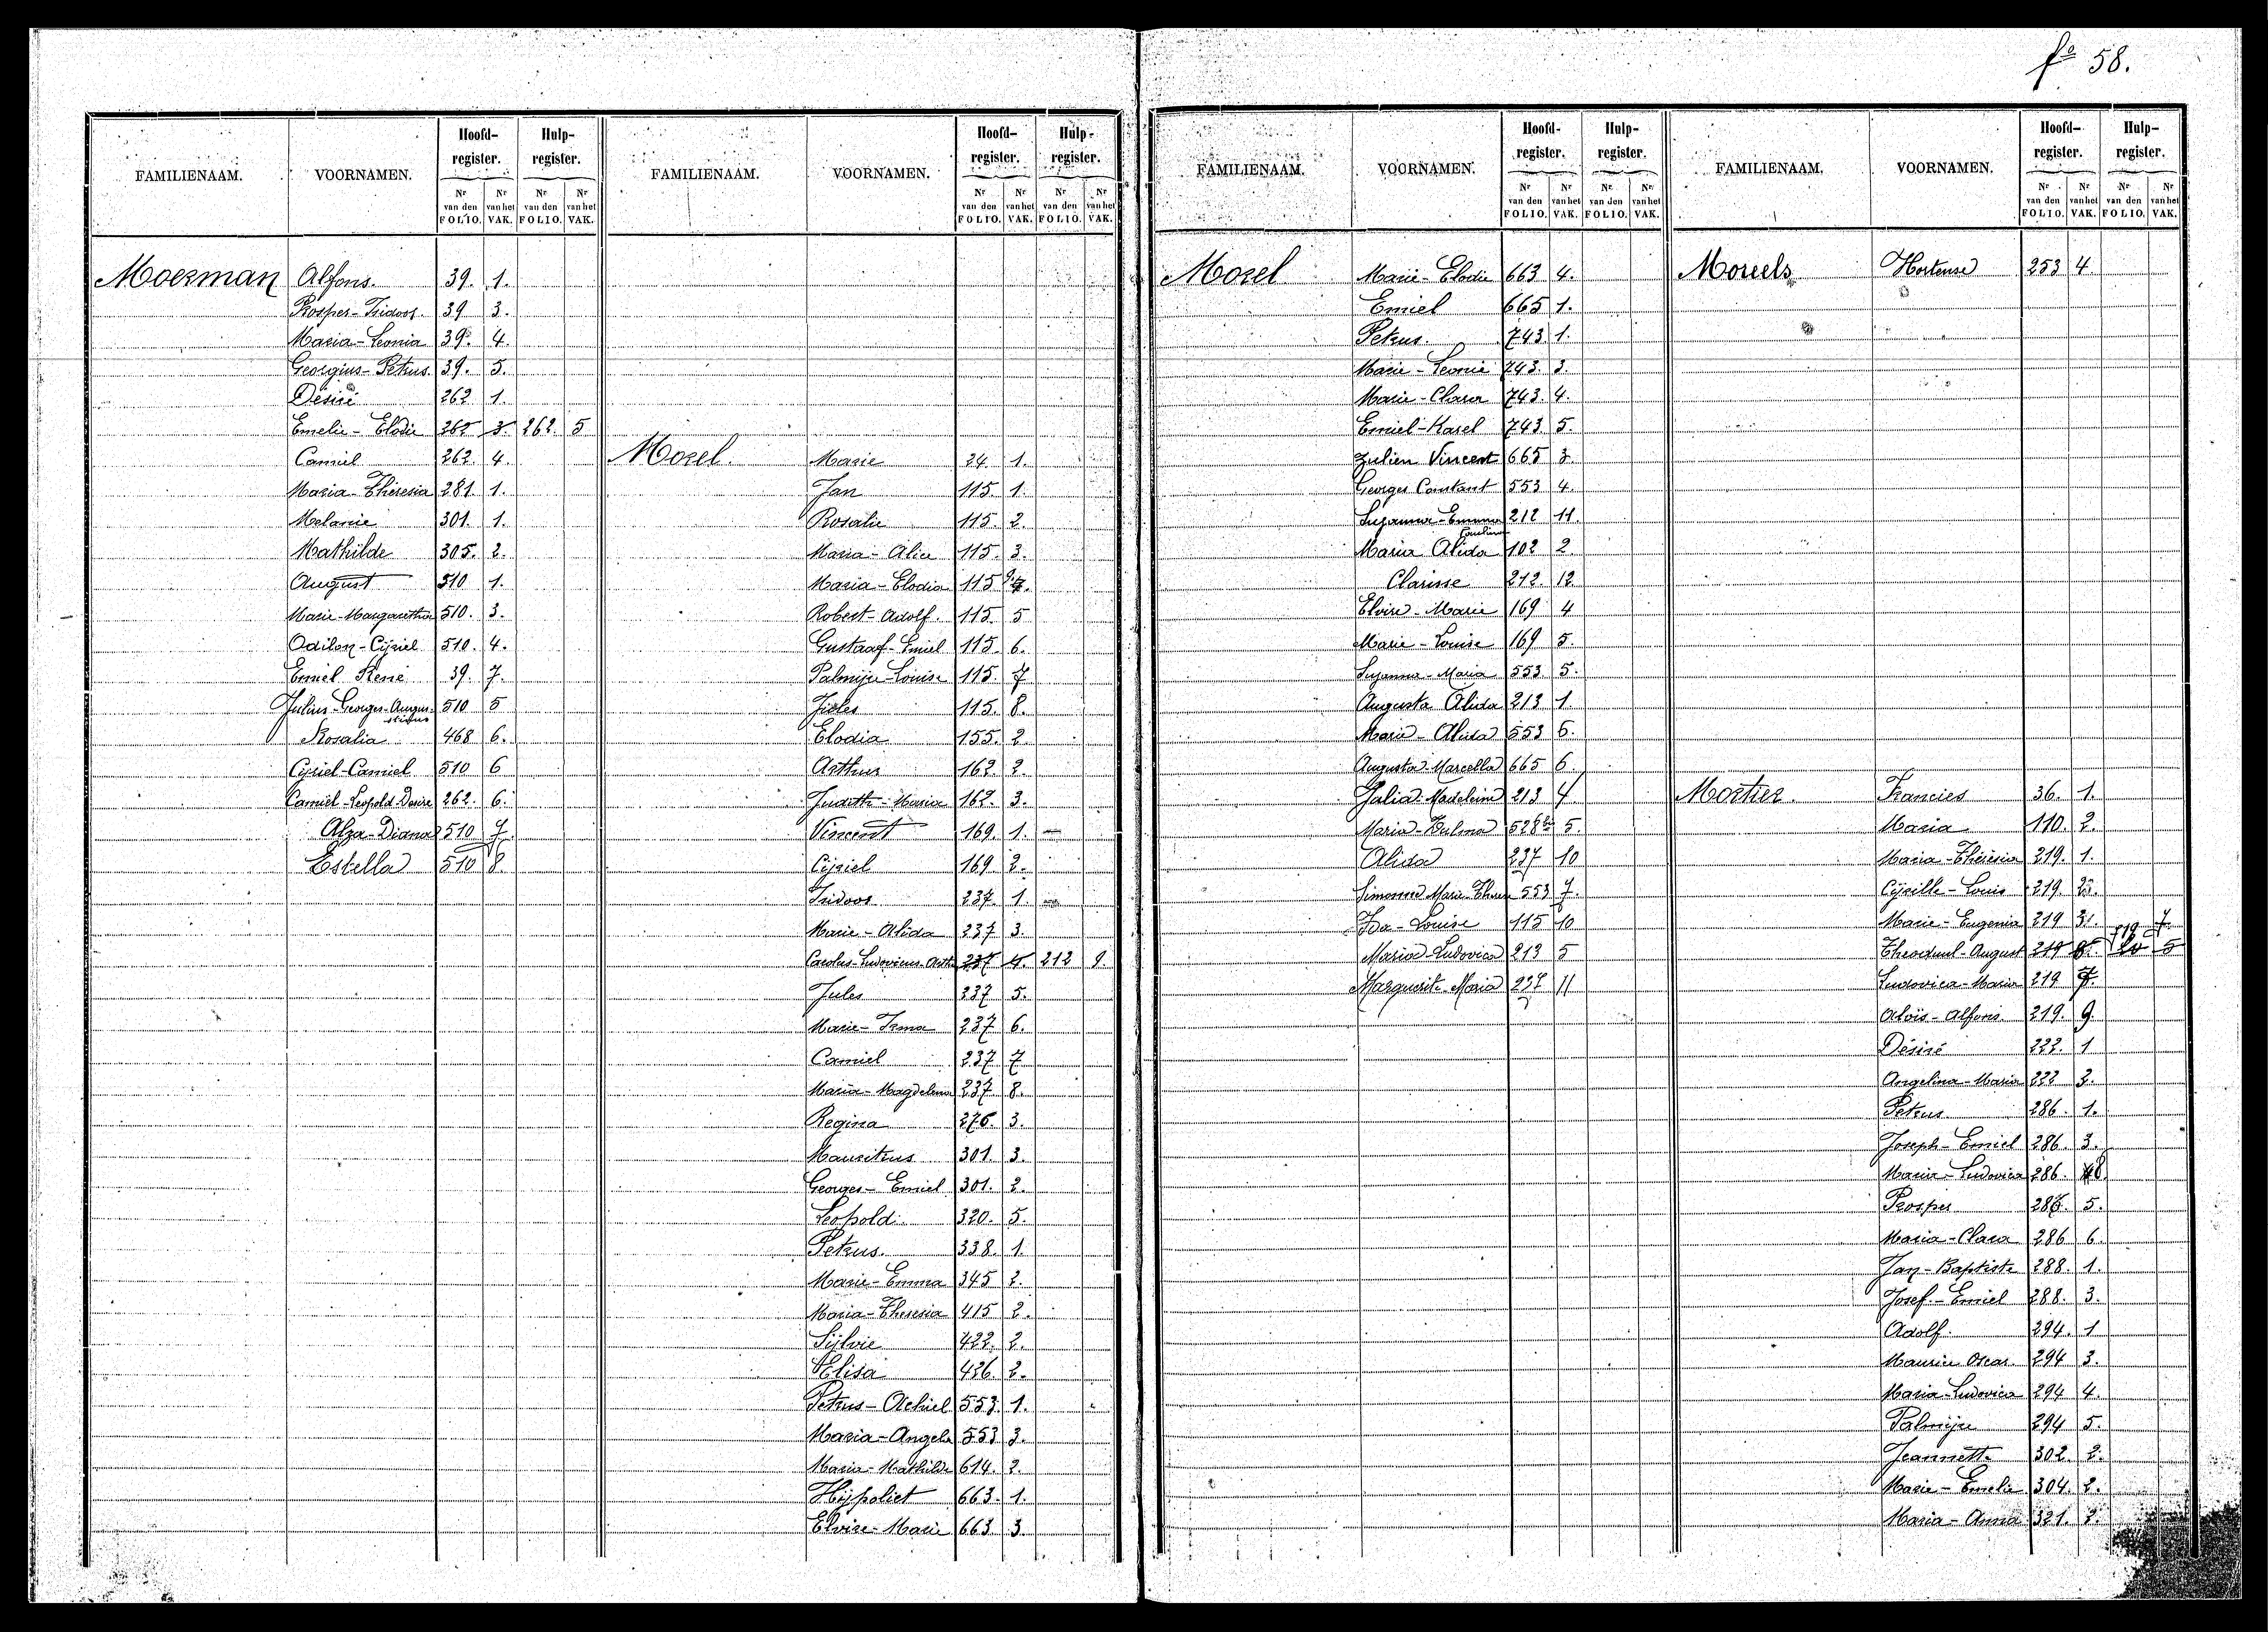 fº 58.
FAMILIENAAM. VOORNAMEN. Hoofd-register. Hulp-register.
Nr van den FOLIO. Nr van het VAK. Nr van den FOLIO. Nr van het VAK.
Moerman Alfons. 39. 1.
Prosper-Isidoor. 39 3.
Maria-Leonia 39. 4.
Georgius-Petrus. 39. 5.
Desiré 262 1.
Emelie-Elodie 262 3. 262. 5
Camiel 262. 4.
Maria-Theresia 281. 1.
Melanie 301. 1.
Mathilde 305. 2.
August 510 1.
Marie-Margaretha 510. 3.
Odilon-Cyriel 510. 4.
Emiel René 39. 7.
Julius-Georges-Augustinus 510 5
Rosalia 468 6.
Cyriel-Camiel 510 6
Camiel-Leopold-Desire 262. 6.
Alza-Diana 510 7
Estella 510 8
FAMILIENAAM. VOORNAMEN. Hoofd-register. Hulp-register.
Nr van den FOLIO. Nr van het VAK. Nr van den FOLIO. Nr van het VAK.
Morel Marie 24. 1.
Jan 115. 1.
Rosalie 115. 2.
Maria-Alice 115. 3.
Maria-Elodia 115
Robert-Adolf. 115. 5
Gustaaf-Emiel 115. 6.
Palmyre-Louise 115. 7
Jules 115. 8.
Elodia 155. 2.
Arthur 162 2.
Judith-Maria 162. 3.
Vincent 169. 1.
Cyriel 169 2.
Isidoor 237. 1.
Marie-Alida 237 3.
Carolus-Ludovicus-Arth 237 4. 212 9.
Jules 237 5.
Marie-Irma 237 6.
Camiel 237 7
Maria-Magdelena 237 8.
Regina 276. 3.
Mauritius 301. 3.
Georges-Emiel 301. 2.
Leopold 320. 5.
Petrus. 338. 1.
Marie-Emma 345 2.
Maria-Theresia 415 2.
Sylvie 422. 2.
Elisa 426. 2.
Petrus-Achiel 553. 1.
Maria-Angela 553 3.
Maria-Mathilde 614. 2.
Hyppoliet 663. 1.
Elvire-Marie 663. 3.
FAMILIENAAM. VOORNAMEN. Hoofd-register. Hulp-register.
Nr van den FOLIO. Nr van het VAK. Nr van den FOLIO. Nr van het VAK.
Morel Marie-Elodie 663 4.
Emiel 665 1.
Petrus. 743. 1.
Marie-Leonie 743. 3.
Marie-Clara 743. 4.
Emiel-Karel 743 5.
Julien Vincent 665 3.
Georges Constant 553 4.
Suzanna-Emma 212 11.
Maria Alida 102 2
Clarisse 212. 12.
Elvire-Marie 169 4
Marie-Louise 169 5.
Suzanna-Maria 553 5.
Augusta Alida 213 1.
Maria-Alida 553 6.
Augusta-Marcella 665 6.
Julia Madeleine 213 4
Maria-Zulma 528bis 5.
Alida 237 10
Simonne Marie 553 7.
Ida-Louise 115 10
Maria-Ludovica 213 5
Marguerite-Maria 237 11
FAMILIENAAM. VOORNAMEN. Hoofd-register. Hulp-register.
Nr van den FOLIO. Nr van het VAK. Nr van den FOLIO. Nr van het VAK.
Moreels Hortense 253 4
Mortier. Francies 36. 1.
Maria 110. 2.
Maria-Theresia 219. 1.
Cyrille-Louis 219.
Marie-Eugenia 219 3.
Theoduul-August 219 719 7
Ludovica-Maria 219 7.
Aloïs-Alfons. 219. 9.
Désiré 222. 1
Angelina-Maria 222 3.
Petrus 286. 1.
Joseph-Emiel 286. 3.
Maria-Ludovica 286.
Prosper 286. 5.
Maria-Clara 286 6.
Jan-Baptiste 288. 1.
Josef-Emiel 288. 3.
Adolf. 294. 1
Maurice Oscar. 294 3.
Maria-Ludovica 294 4.
Palmyre 294 5.
Jeannette 302. 2.
Marie-Emelie 304. 2.
Maria-Anna 321. 2.